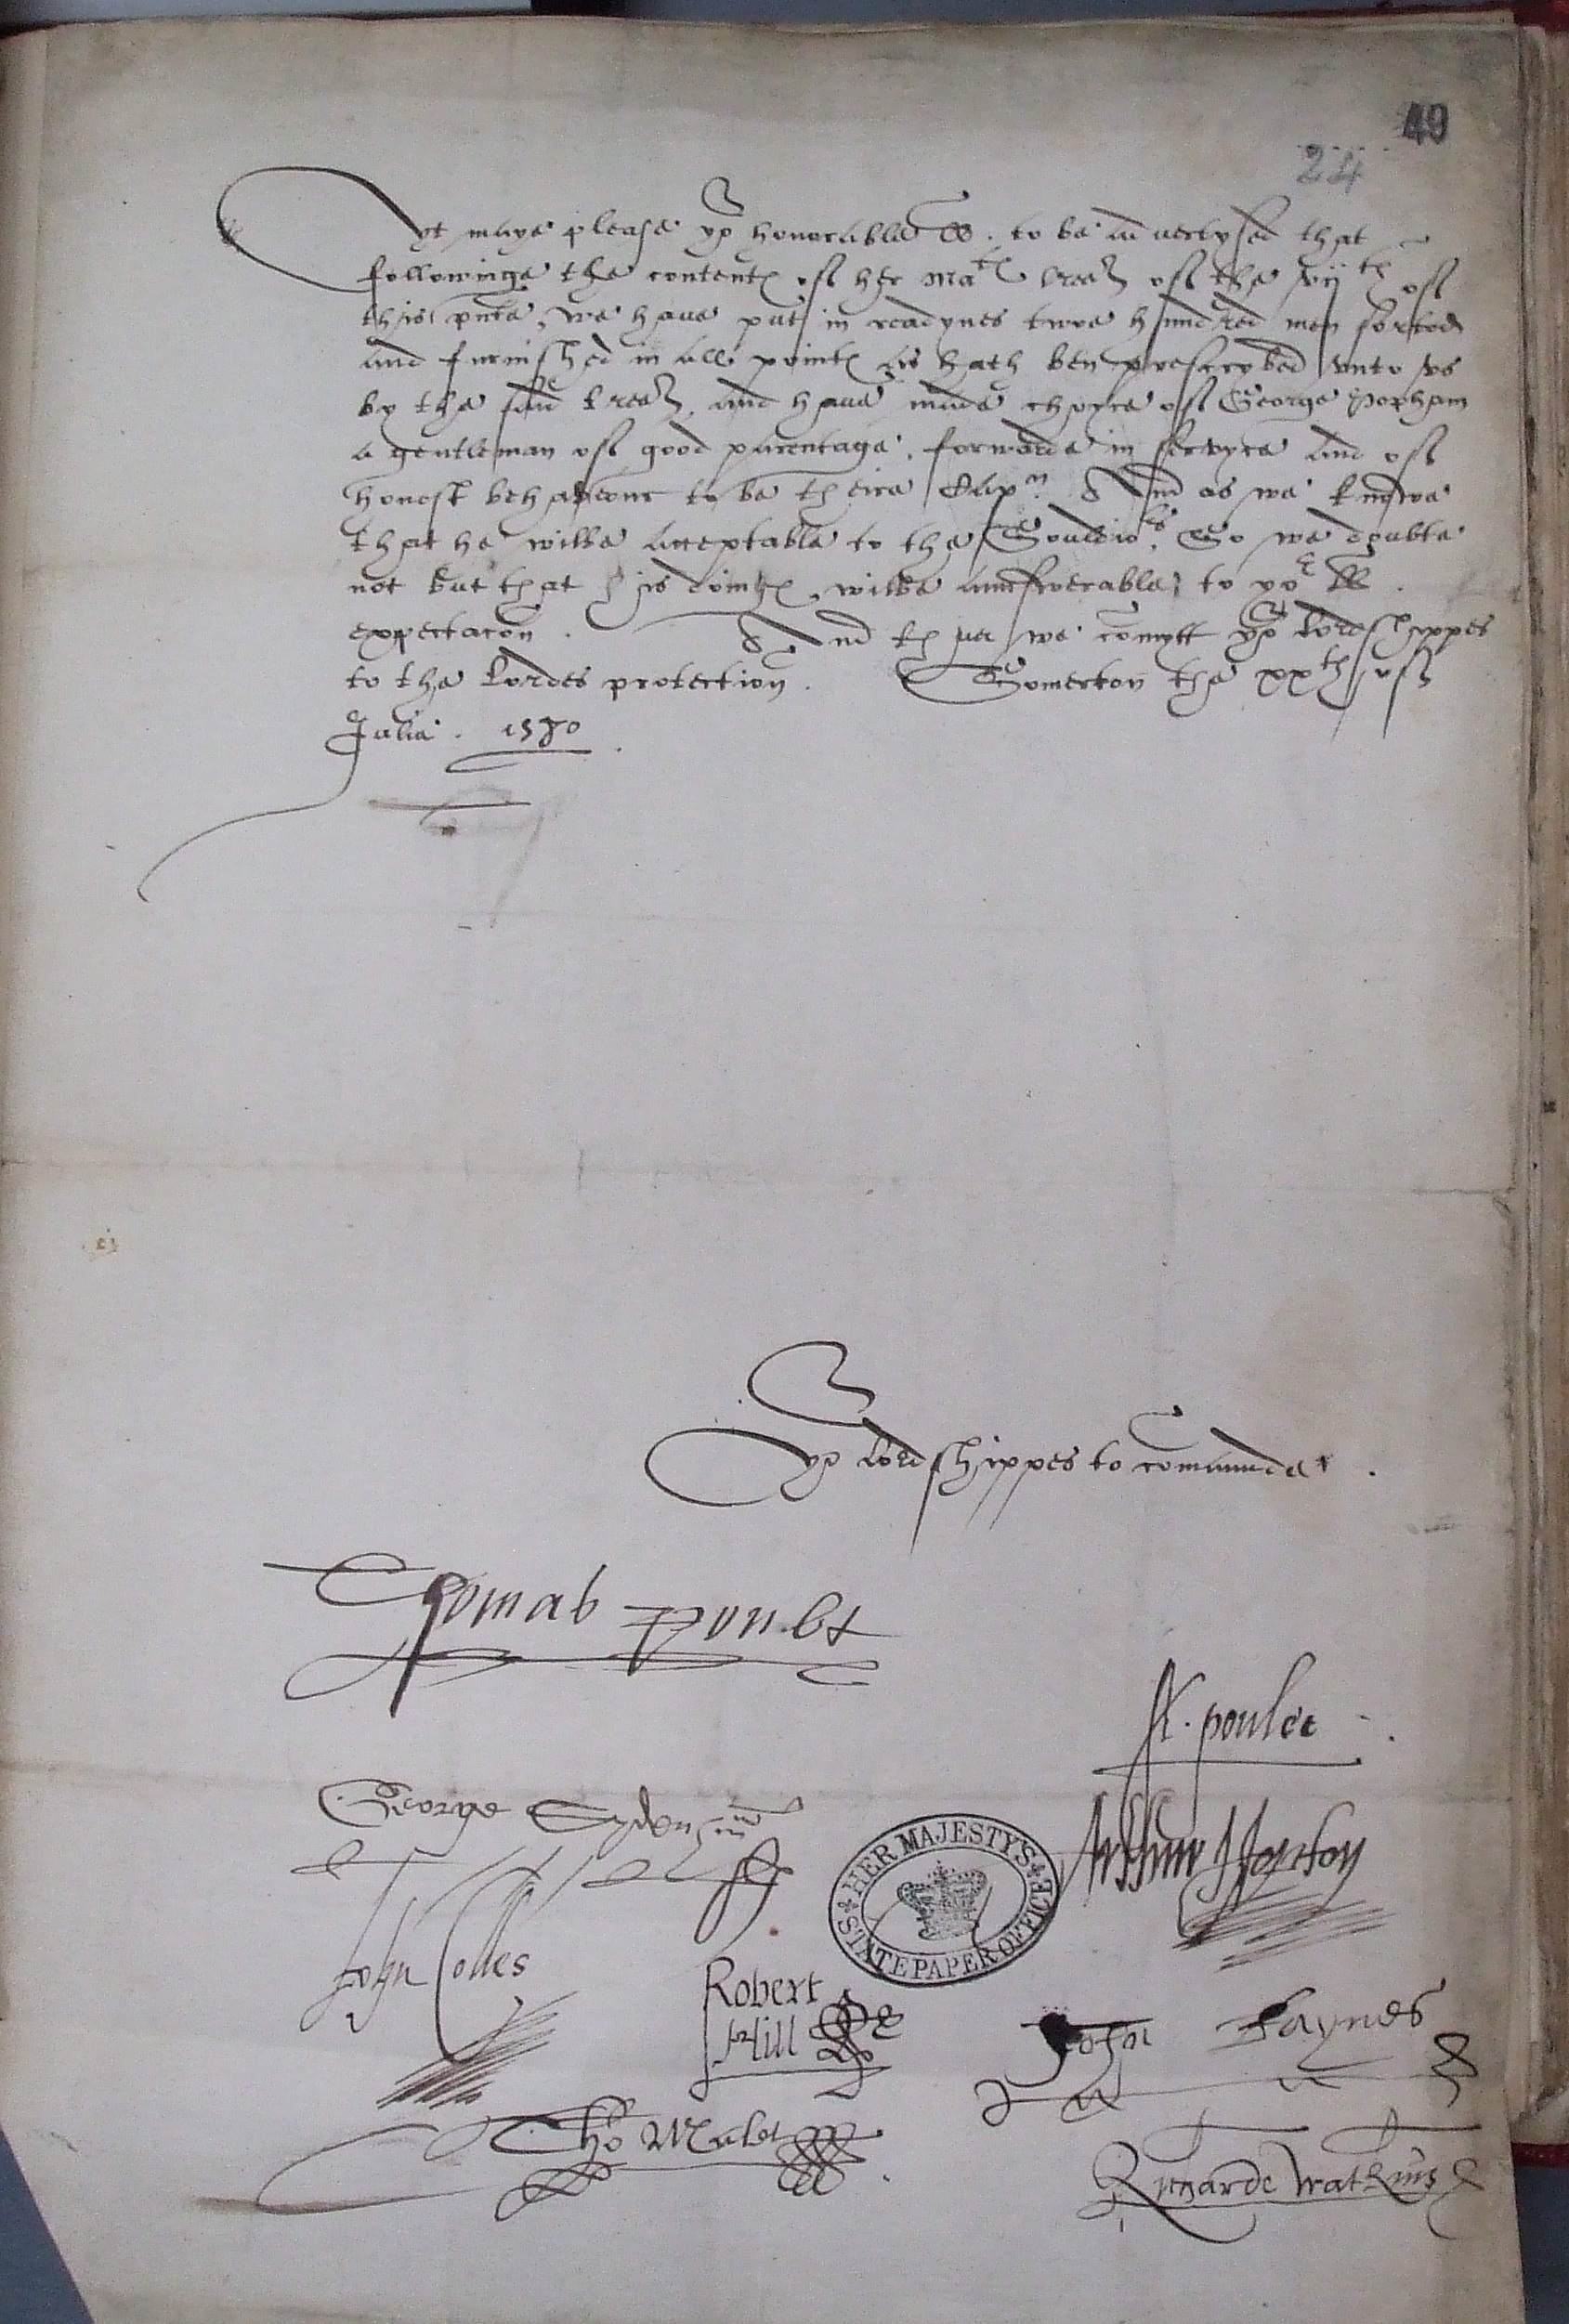 49
24
yt maye please yor honorable LL. to be advertysed that
followinge the contentes of her Mates lres of the viith of
this pnte, we have put in readynes twoe hundred men sorted
and furnished in all pointes as hath ben prescrybed vnto vs
by the said lres, and have made choyce of George Popham
a gentleman of good parentage, forwarde in servyce and of
honest behaveour to be theire Capn. And as we knowe
that he wilbe acceptable to the Souldiors, So we doubte
not but that his doinges, wilbe aunswerable to yor LL.
expectacon. And thus we comytt yor Lordshippes
to the Lordes protection. Somerton the xxth of
Julie. 1580.
yor Lordshippes to comaunde.
Thomas Poulet
A. Poulet
George Sydenham
Arthur Hopton
John Colles
Robert
Hill
John
Tho Malet
Richarde Watkins
HER MAJESTY'S STATE PAPER OFFICE